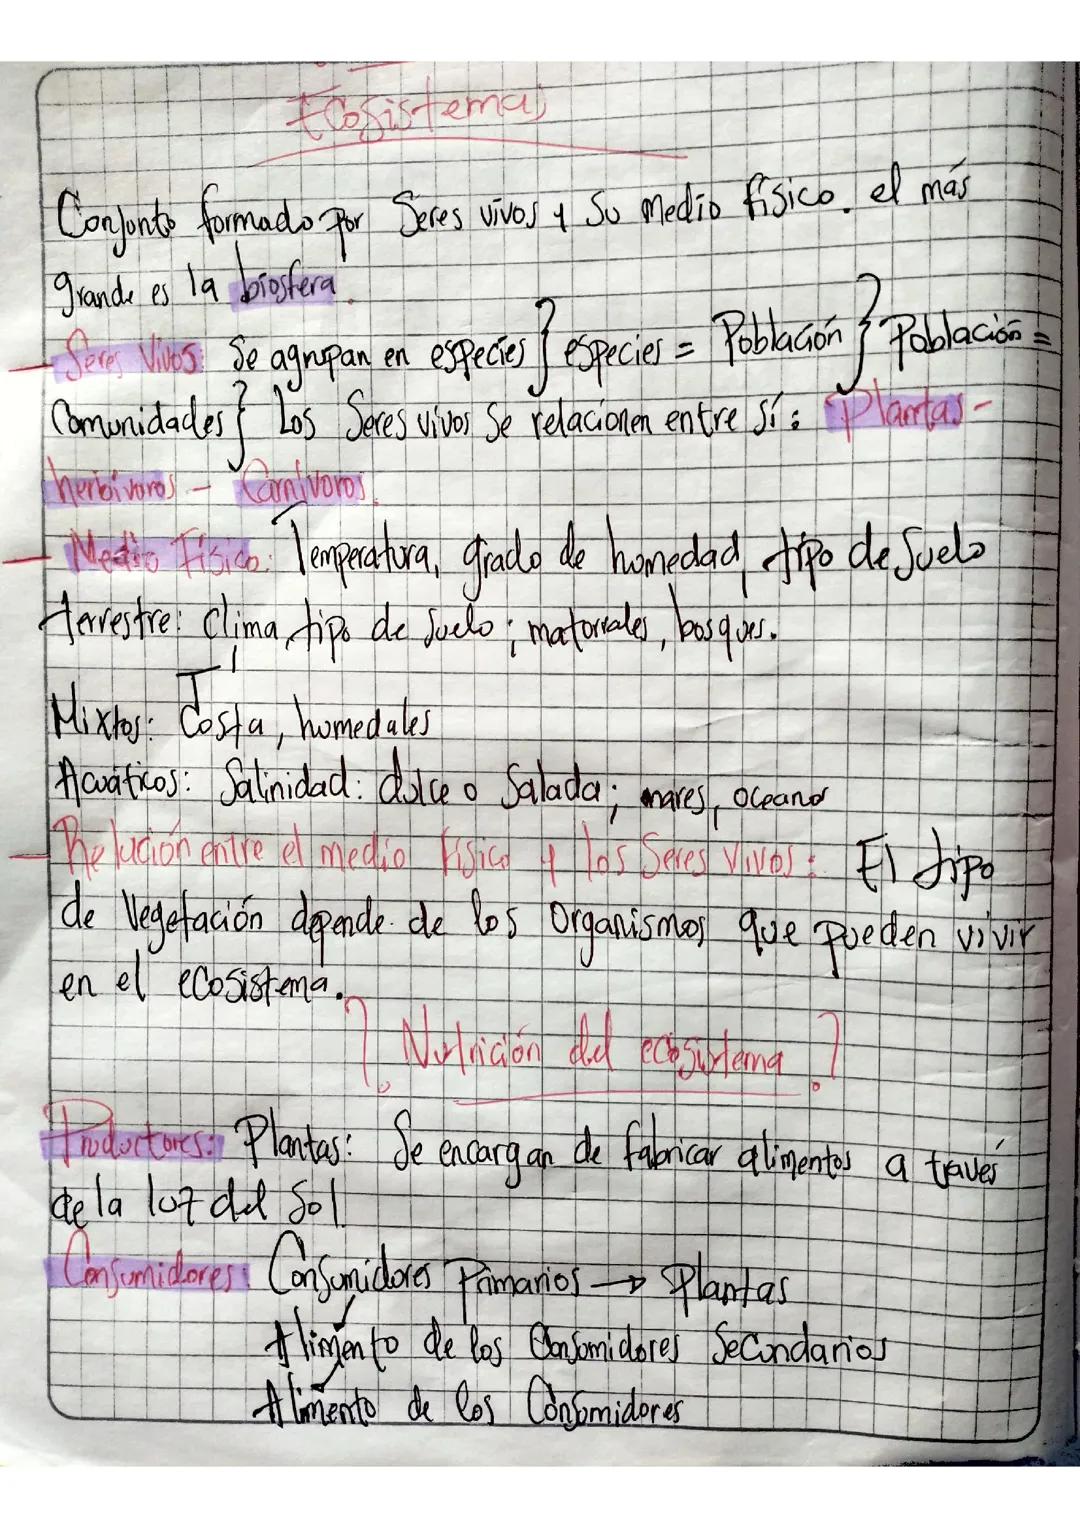 Ecosistemas
Conjunto formado por Seres vivos y Su Medio físico. el más
grande es la biosfera.
- Seres Vivos: Se agrupan en especies } especies = Población } Población =
Comunidades } Los Seres vivos Se relacionan entre sí: Plantas -
herbívoros - Carnívoros.
- Medio Físico: Temperatura, grado de humedad, tipo de Suelo
terrestre: Clima, tipo de suelo; matorrales, bosques.
Mixtos: Costa, humedales
Acuáticos: Salinidad: dulce o Salada; mares, oceanos
- Relación entre el medio físico y los Seres Vivos: El tipo
de Vegetación depende de los Organismos que pueden vivir
en el ecosistema.
¿ Nutrición del ecosistema ?
Productores: Plantas: Se encargan de fabricar alimentos a través
de la luz del Sol.
Consumidores: Consumidores Primarios → Plantas
Alimento de los Consumidores Secundarios
Alimento de los Consumidores